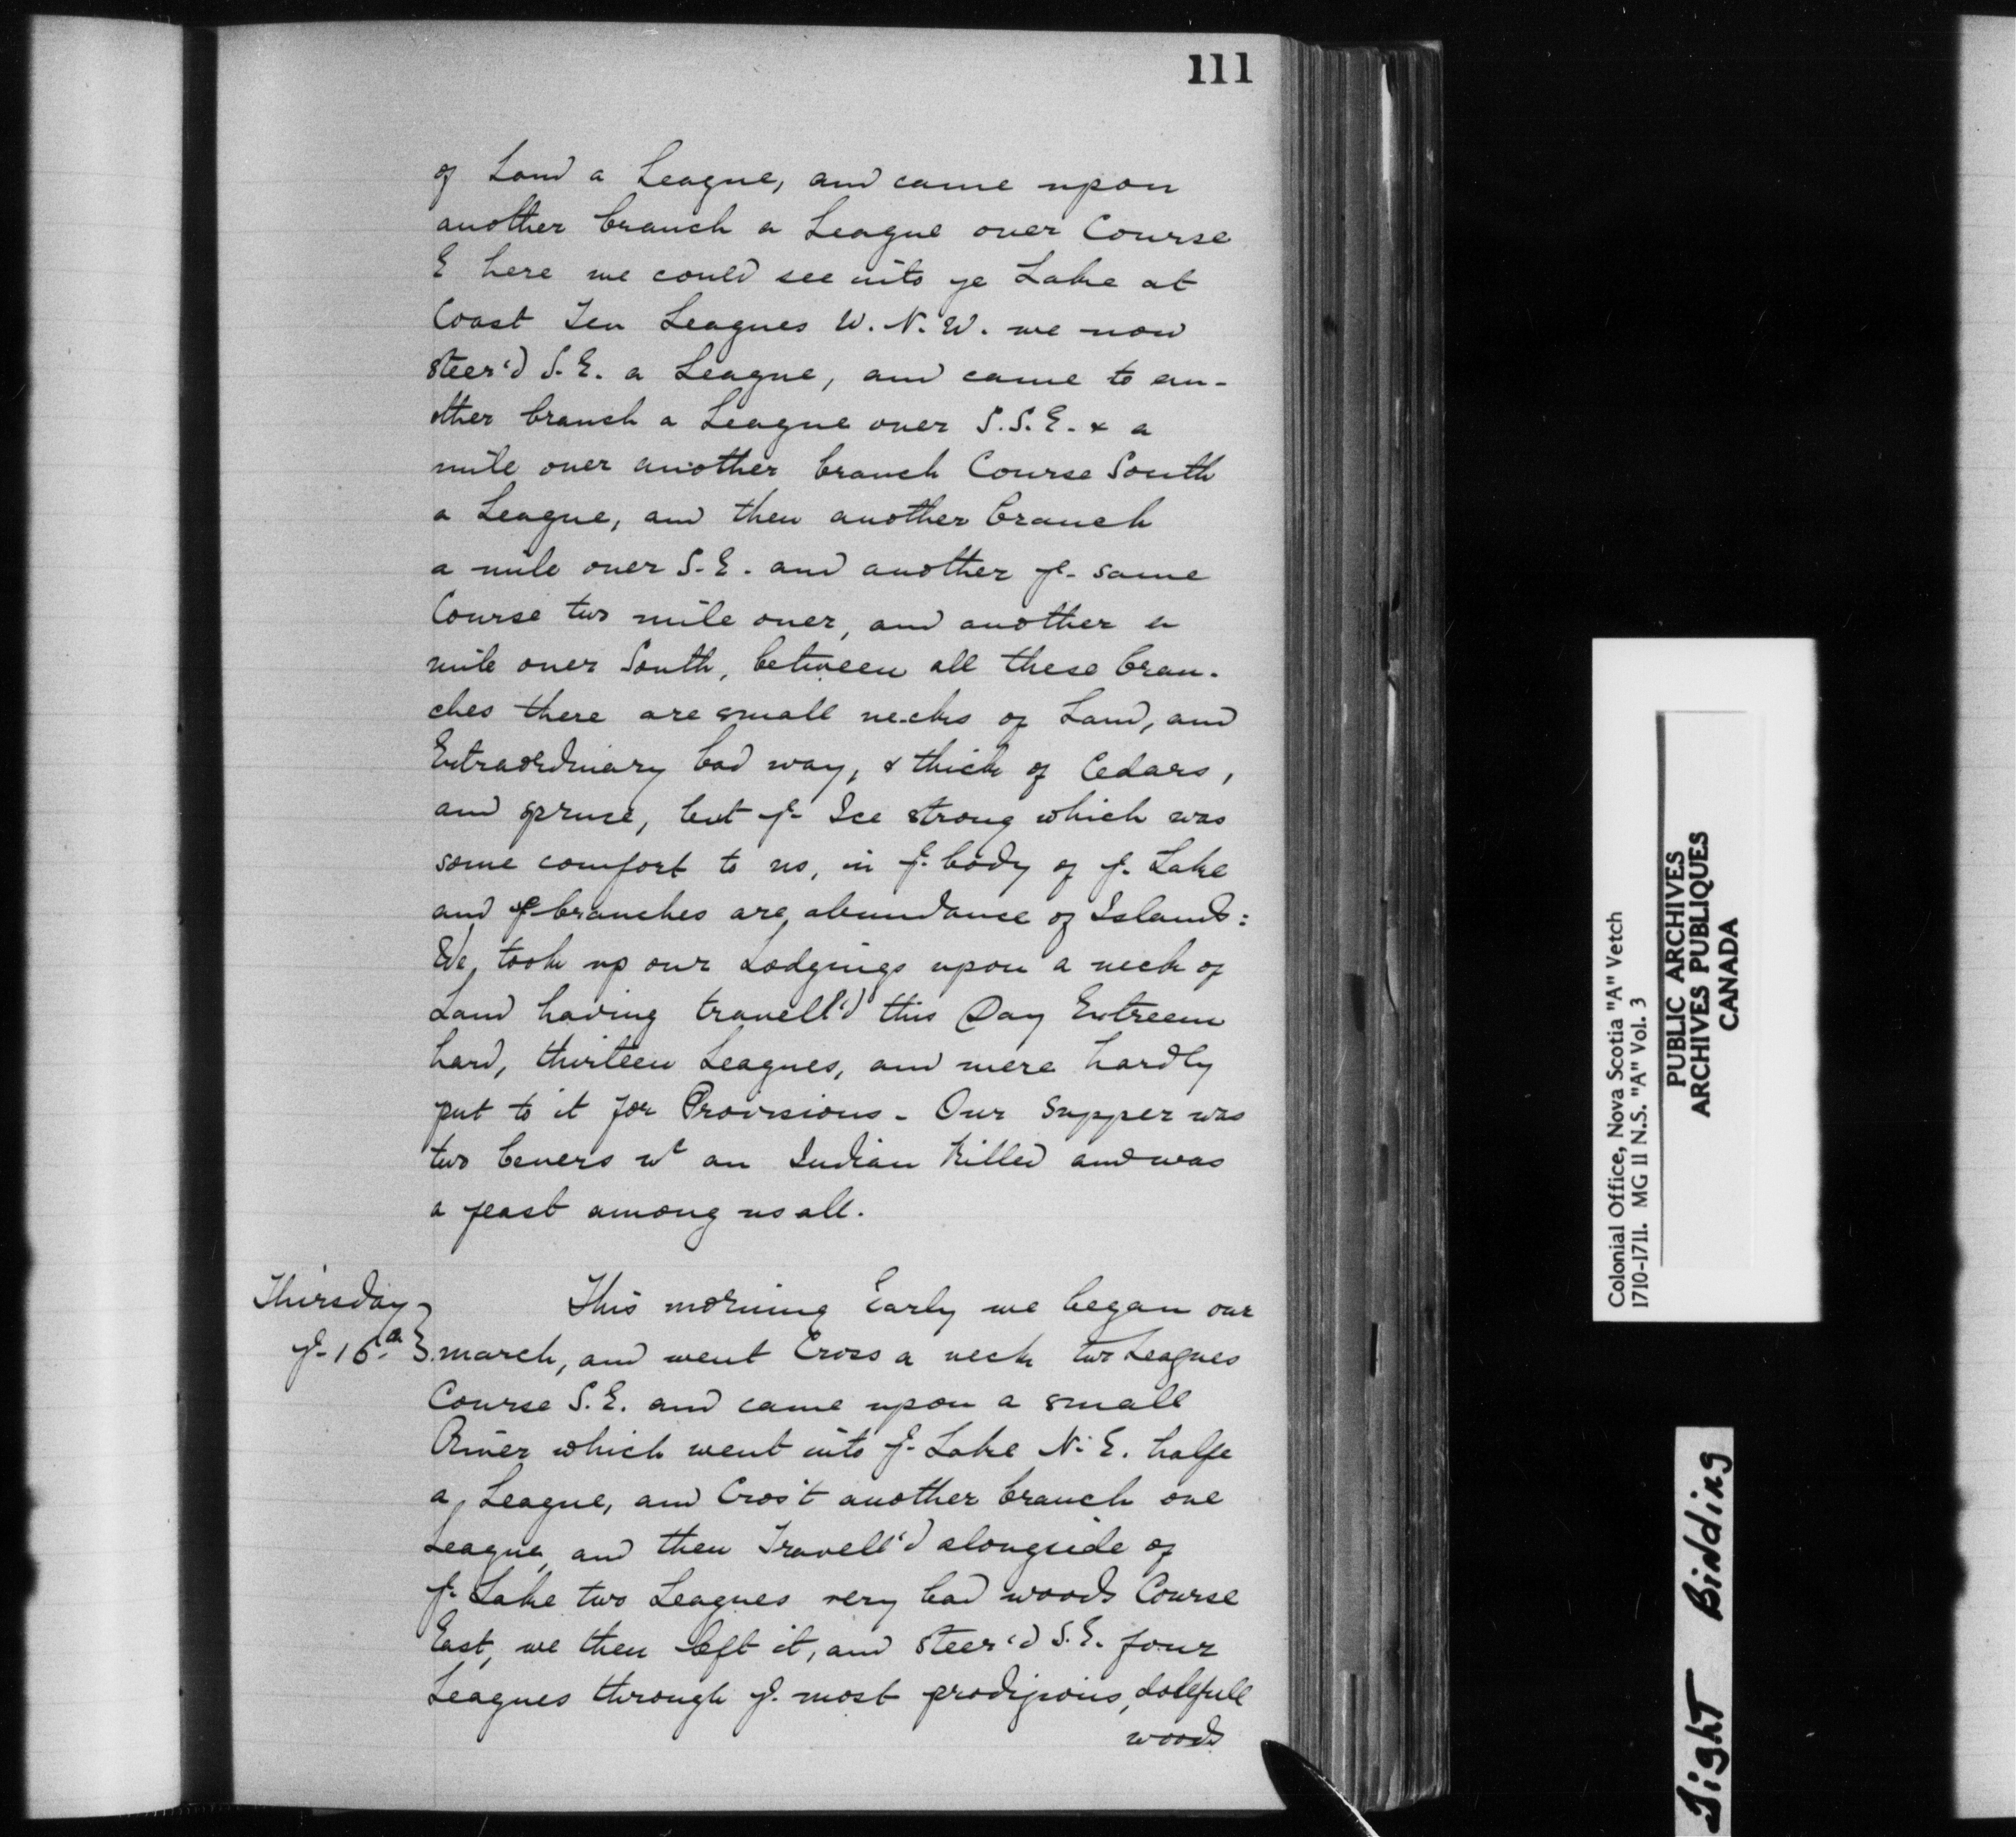 111
of Land a League, and came upon
another branch a League over Course
E here we could see into ye Lake at
Coast Ten Leagues W. N. W. we now
steer'd S. E. a League, and came to an-
other branch a League over S. S. E. & a
mile over another branch Course South
a League, and then another branch
a mile over S. E. and another ye same
Course two mile over, and another a
mile over South, between all these bran-
ches there are small necks of Land, and
Extraordinary bad way, & thick of Cedars,
and spruce, but ye Ice strong which was
some comfort to us, in ye body of ye Lake
and ye branches are abundance of Islands:
We took up our Lodgings upon a neck of
Land having travell'd this Day Extreem
hard, thirteen Leagues, and were hardly
put to it for Provisions - Our Supper was
two bevers wt an Indian Killed and was
a feast among us all.
Thursday
ye 16th
This morning Early we began our
march, and went Cross a neck two Leagues
Course S. E. and came upon a small
River which went into ye Lake N. E. halfe
a League, and Cros't another branch one
League, and then Travell'd alongside of
ye Lake two Leagues very bad woods Course
East, we then left it, and steer'd S. E. four
Leagues through ye most prodigious, dolefull
woods
Colonial Office, Nova Scotia "A" Vetch
1710-1711. MG 11 N.S. "A" Vol. 3
PUBLIC ARCHIVES
ARCHIVES PUBLIQUES
CANADA
Tight Binding